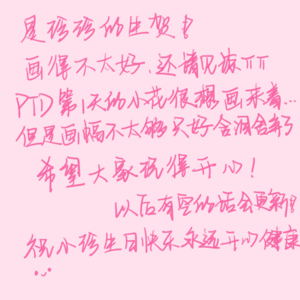 是珍珍的生贺！
画得不太好，还请见谅TT
PTD第1天的小花很想画来着...
但是画幅不太够只好含泪舍弃了
希望大家玩得开心！
以后有空的话会更新！
祝小珍生日快乐永远开心健康